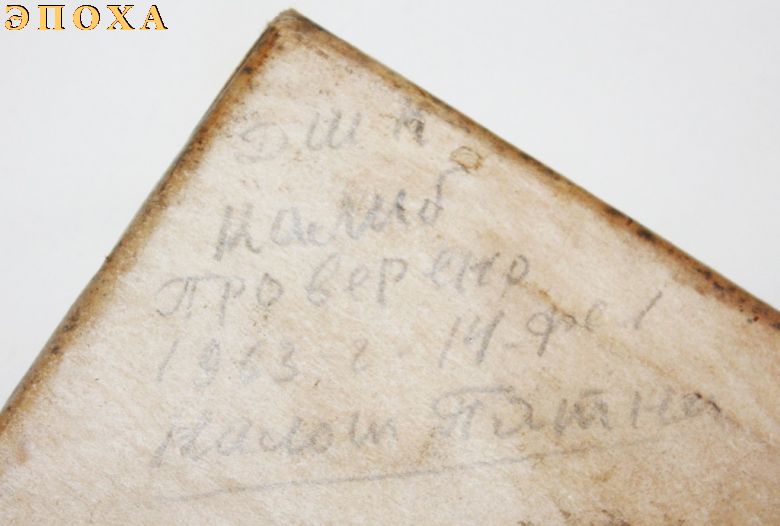 ЭПОХА
ДШК
калиб
проверено
1933 г. 14 фев
калош Пятна